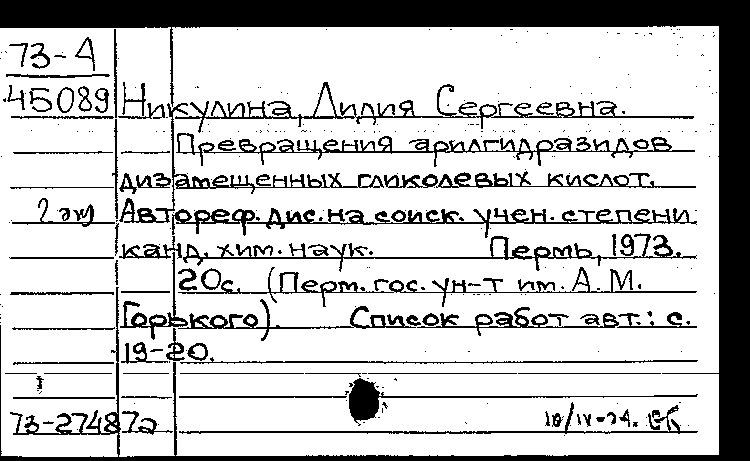 73-А
45089
Никулина, Лидия Сергеевна.
Превращения арилгидразидов
дизамещенных гликолевых кислот.
2 экз
Автореф. дис. на соиск. учен. степени
канд. хим. наук. Пермь, 1973.
20с. (Перм. гос. ун-т им. А. М.
Горького). Список работ авт.: с.
19-20.
73-27487а